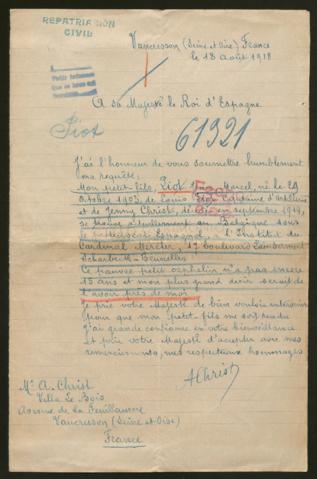 REPATRIACION
CIVIL
Vaucresson (Seine et Oise) France
le 18 août 1918
A sa Majesté le Roi d'Espagne
Piot
61321
J'ai l'honneur de vous soumettre humblement
ma requête:
Mon petit-fils, Piot Marcel, né le 29
Octobre 1903, de Louis Piot Capitaine d'artillerie
et de Jenny Christ, en septembre 1914,
se trouve actuellement en Belgique sous
le protectorat Espagnol, à l'Institut du
Cardinal Mercier, 17 boulevard Lambermont
Scharbeek-Bruxelles
Ce pauvre petit orphelin n'a pas encore
15 ans et mon plus grand désir serait de
l'avoir près de moi
Je prie votre Majesté de bien vouloir intervenir
pour que mon petit-fils me soit rendu
J'ai grande confiance en votre bienveillance
Et prie votre Majesté d'accepter avec mes
remerciements, mes respectueux hommages
A Christ
Mr A. Christ
Villa Le Bois
Avenue de La Feuillaume
Vaucresson (Seine et Oise)
France